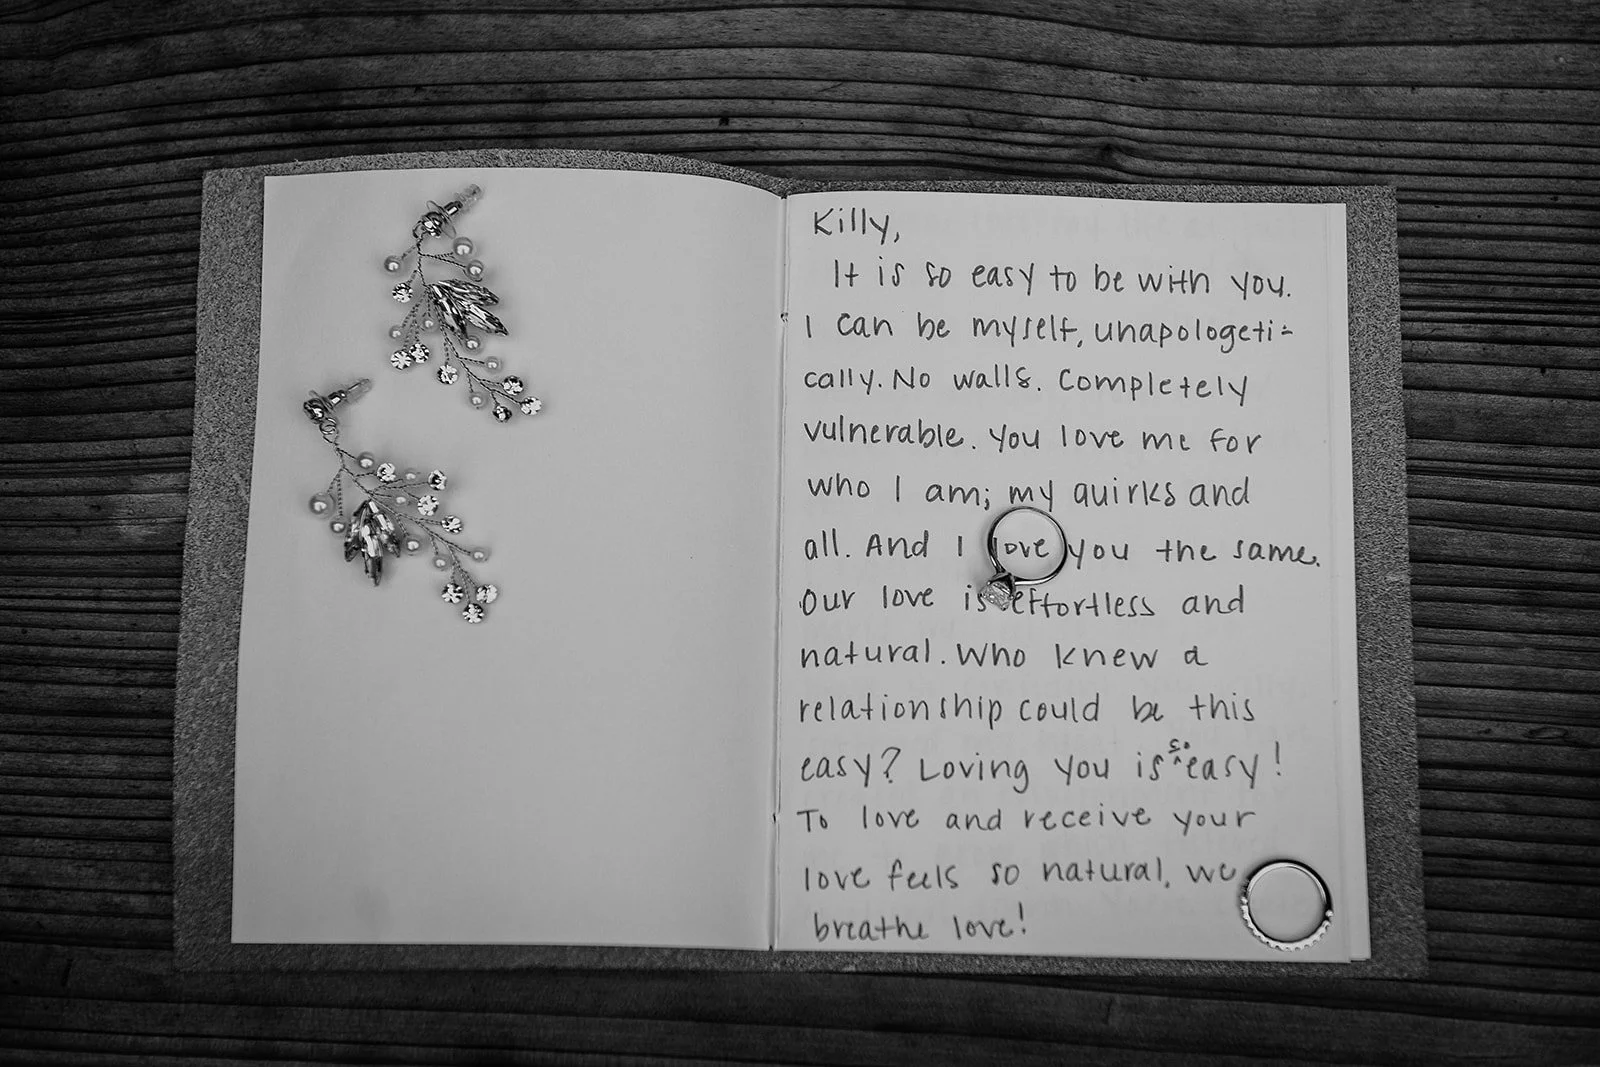 Killy,
It is so easy to be with you.
I can be myself, unapologeti-
cally. No walls. Completely
vulnerable. You love me for
who I am; my quirks and
all. And I love you the same.
Our love is effortless and
natural. Who knew a
relationship could be this
easy? Loving you is so easy!
To love and receive your
love feels so natural, we
breathe love!